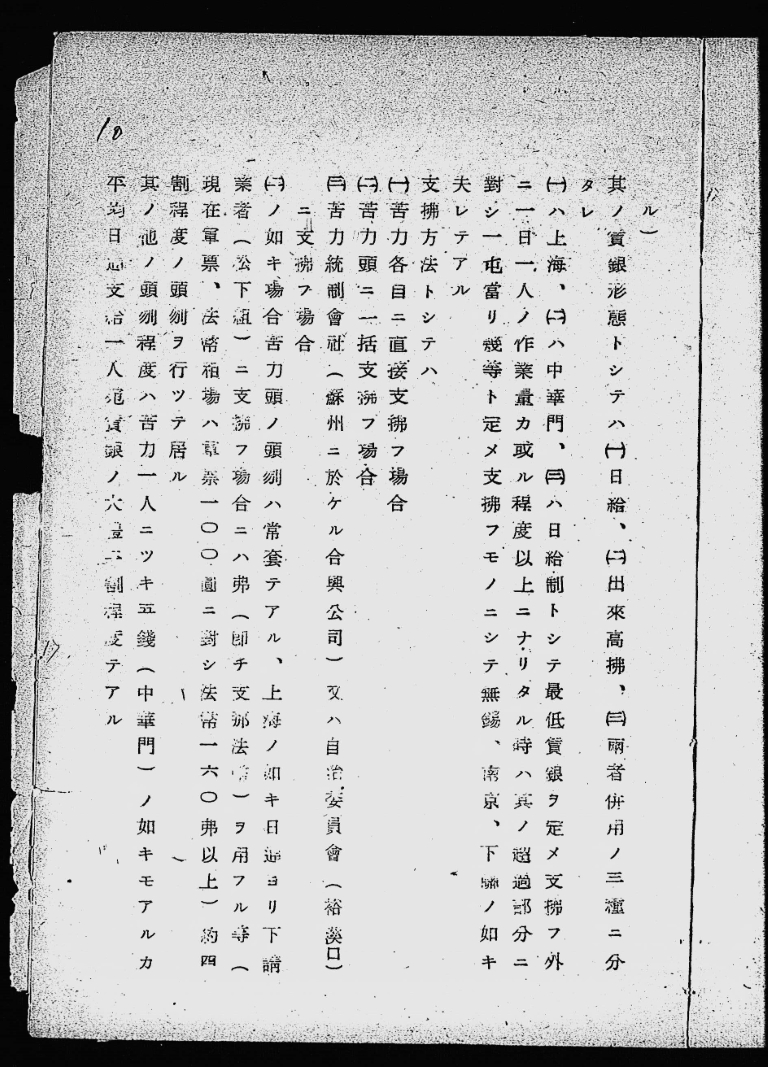 ル)
其ノ賃銀形態トシテハ㈠日給、㈡出來高拂、㈢兩者併用ノ三種ニ分
タレ
㈠ハ上海、㈡ハ中華門、㈢ハ日給制トシテ最低賃銀ヲ定メ支拂フ外
ニ一日一人ノ作業量カ或ル程度以上ニナリタル時ハ其ノ超過部分ニ
對シ一屯當リ幾等ト定メ支拂フモノニシテ無錫、南京、下關ノ如キ
夫レテアル
支拂方法トシテハ
㈠苦力各自ニ直接支拂フ場合
㈡苦力頭ニ一括支拂フ場合
㈢苦力統制會社(蘇州ニ於ケル合興公司)又ハ自治委員會(裕溪口)
ニ支拂フ場合
㈡ノ如キ場合苦力頭ノ頭刎ハ常套テアル、上海ノ如キ日通ヨリ下請
業者(松下組)ニ支拂フ場合ニハ弗(卽チ支那法幣)ヲ用フル等(
現在軍票、法幣相場ハ軍票一〇〇圓ニ對シ法幣一六〇弗以上)約四
割程度ノ頭刎ヲ行ツテ居ル
其ノ他ノ頭刎程度ハ苦力一人ニツキ五錢(中華門)ノ如キモアルカ
平均日通支給一人宛賃銀ノ大體二割程度テアル
10
17